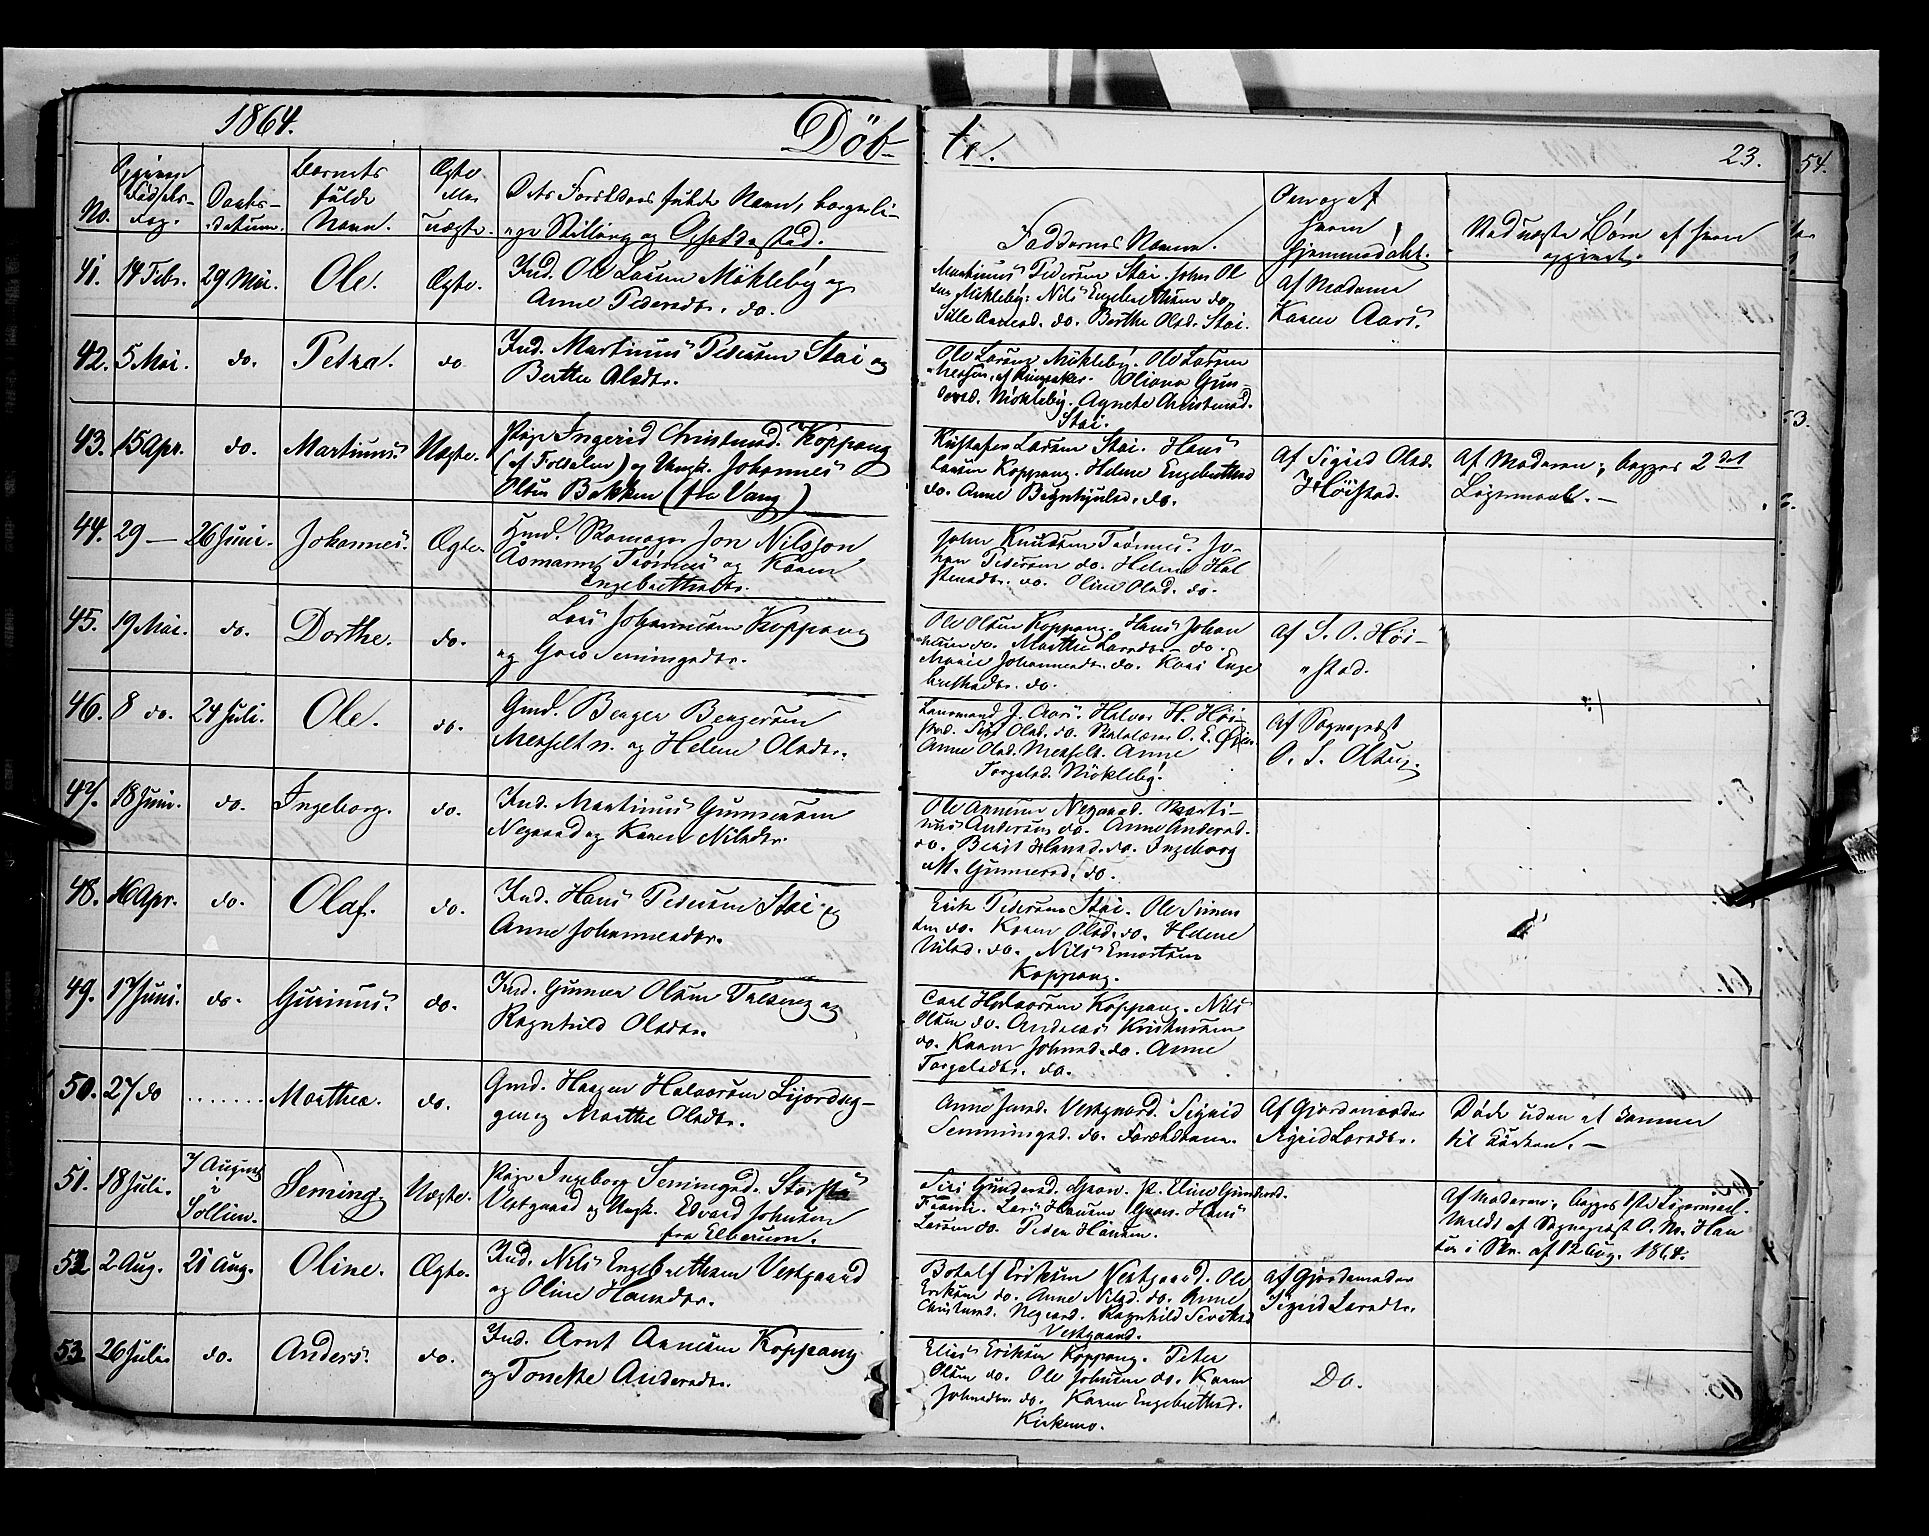 1864.
Døb-
te.
23.
54.
No.
Opgiven
Fødsels-
dag.
Daabs-
datum.
Barnets
fulde
Navn.
Ægte
eller
uægte.
Dets Forældres fulde Navn, borgerli-
ge Stilling og Opholdssted.
Faddernes Navne.
Om og af
hvem
hjemmedøbt.
Ved uægte Børn af hvem
opgivet.
41. 14 Febr. 29 Mai. Ole. Ægte.
Ind. Ole Larsen Mökleby og
Anne Pedersdtr. do.
Martinus Pedersen Stai. John Ol
sen Mikleby. Nils Engebrethsen do.
Sille Aarnesd. do. Berthe Olsd. Stai.
Af Madame
Karen Aars.
42. 5 Mai. do. Petra. do
Ind. Martinus Pedersen Stai og
Berthe Olsdtr.
Ole Larsen Mökleby. Ole Larsen
af Ringsaker. Oliana Gun-
dersd. Mökleby. Agnete Christensd.
Stai.
43. 15 Apr. do. Martinus. Uægte.
Pige Ingerid Christensd. Koppang
(af Foldalen) og Ungk. Johannes
Olsen Bakken (fra Vang)
Kristofer Larsen Stai. Hans
Larsen Koppang. Helene Engebrethsd
do. Anne Bersvendsd. do.
Af Sigrid Olsd.
Höistad.
Af Moderen; begges 2det
Leiermaal. —
44. 29 — 26 Juni. Johannes. Ægte.
Gmd. Skomager Jon Nilsson
Aasmann Trönnes og Karen
Engebrethsdtr.
John Knudsen Trönnes. Jo-
han Pedersen do. Helene Hal
stensdtr. do. Oline Olsd. do.
45. 19 Mai. do. Dorthe. do.
Lars Johannesen Koppang
og Goro Semingsdtr.
Ole Olsen Koppang. Hans Johan
nesen do. Marthe Larsdtr. do.
Marie Johannesdtr. do. Kari Enge
brethsdtr. do.
Af S. O. Höi-
stad.
46. 8 do. 24 Juli. Ole. do.
Gmd. Berger Bergersen
Messelt n. og Helene Olsdtr.
Lensmand J. Aars. Halvor H. Höi-
stad. Siri Olsd. do. Skolelærer O. E. Øien.
Anne Olsd. Messelt. Anne
Torgalsd. Mökleby.
Af Sognepræst
O. S. Olsen.
47. 18 Juni. do. Ingeborg. do.
Ind. Martinus Gunnersen
Negaard og Karen Nilsdtr.
Ole Arnesen Negaard. Marti-
nus Andersen do. Anne Andersd.
do. Berit Hansd. do. Ingeborg
M. Gunnersd. do.
48. 16 Apr. do. Olaf. do.
Ind. Hans Pedersen Stai og
Anne Johannesdtr.
Erik Pedersen Stai. Ole Simen
sen do. Karen Olsd. do. Helene
Nilsd. do. Nils Emertsen
Koppang.
49. 17 Juni. do. Gurinus. do.
Ind. Gunner Olsen Taleng og
Ragnhild Olsdtr.
Carl Halvorsen Koppang. Nils
Olsen do. Andreas Kristensen
do. Karen Johnsd. do. Anne
Torgalsdtr. do.
50. 27 do ....... Marthea. do.
Gmd. Haagen Halvorsen Lijordeg-
gen og Marthe Olsdtr.
Anne Jensd. Vestgaard. Sigrid
Semmingsd. do. Forældrene.
Af Gjordemoder
Sigrid Larsdtr.
Døde uden at komme
til Kirken. —
51. 18 Juli. 7 August
i
Sollien. Seming. Uægte.
Pige Ingeborg Semingsd. Storsts
Vestgaard og Ungk. Edvard Johnsen
fra Elverum.
Siri Gundersd. Eline Gundersd.
Lars Hansen Hans
Larsen do. Peder Hansen.
Af Moderen; begges 1ste Leiermaal.
Meldt af Sognepræst O. M. Han
sen i Skr. af 12 Aug. 1864.
52 2 Aug. 21 Aug. Oline. Ægte.
Ind. Nils Engebrethsen Vestgaard
og Oline Hansdtr.
Botolf Eriksen Vestgaard. Ole
Eriksen do. Anne Nilsd. do. Anne
Christensd. Negaard. Ragnhild Sivertsd
Vestgaard.
Af Gjordemoder
Sigrid Larsdtr.
53 26 Juli. do. Anders. do.
Ind. Arnt Arnesen Koppang
og Tonette Andersdtr.
Elias Eriksen Koppang. Peter
Olsen do. Ole Johnsen do. Karen
Johnsdtr. do. Karen Engebrethsd.
Kirkemo.
Do.